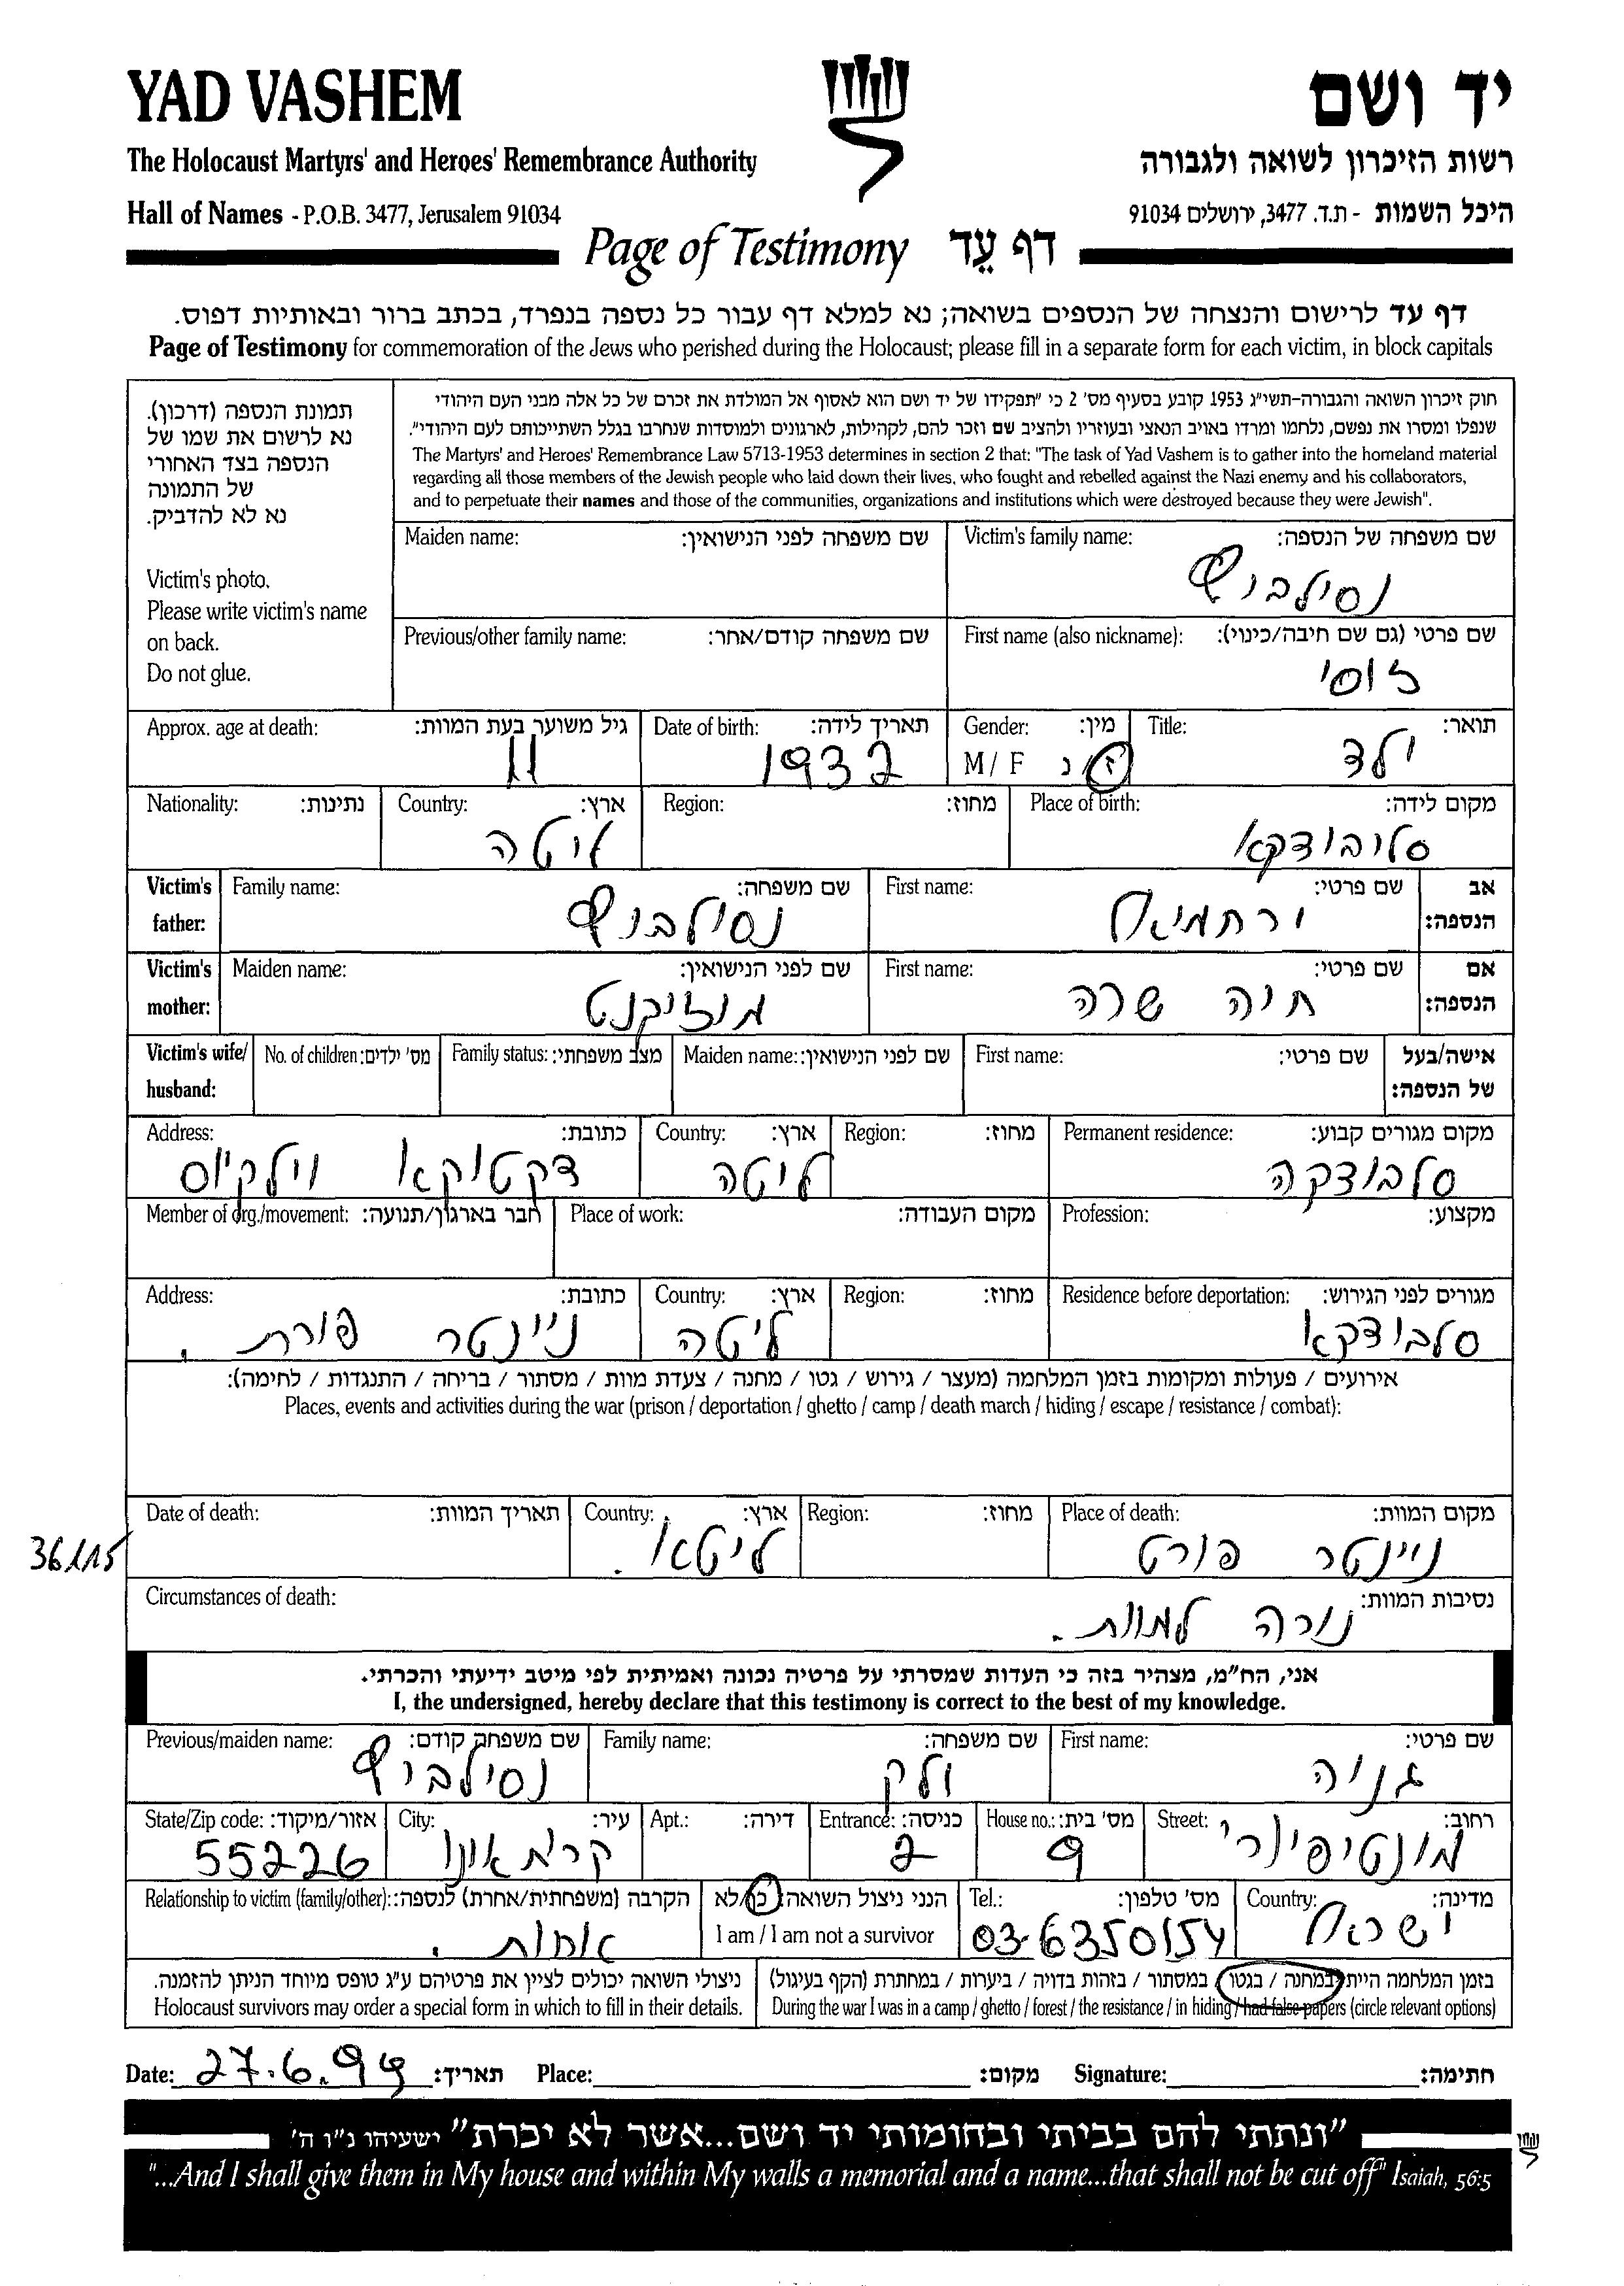 YAD VASHEM
יד ושם
The Holocaust Martyrs' and Heroes' Remembrance Authority
רשות הזיכרון לשואה ולגבורה
Hall of Names - P.O.B. 3477, Jerusalem 91034
היכל השמות - ת.ד. 3477, ירושלים 91034
Page of Testimony דף עֵד
דף עד לרישום והנצחה של הנספים בשואה; נא למלא דף עבור כל נספה בנפרד, בכתב ברור ובאותיות דפוס.
Page of Testimony for commemoration of the Jews who perished during the Holocaust; please fill in a separate form for each victim, in block capitals
תמונת הנספה (דרכון).
נא לרשום את שמו של
הנספה בצד האחורי
של התמונה
נא לא להדביק.
Victim's photo.
Please write victim's name
on back.
Do not glue.
חוק זיכרון השואה והגבורה-תשי"ג 1953 קובע בסעיף מס' 2 כי "תפקידו של יד ושם הוא לאסוף אל המולדת את זכרם של כל אלה מבני העם היהודי
שנפלו ומסרו את נפשם, נלחמו ומרדו באויב הנאצי ובעוזריו ולהציב שם וזכר להם, לקהילות, לארגונים ולמוסדות שנחרבו בגלל השתייכותם לעם היהודי".
The Martyrs' and Heroes' Remembrance Law 5713-1953 determines in section 2 that: "The task of Yad Vashem is to gather into the homeland material
regarding all those members of the Jewish people who laid down their lives, who fought and rebelled against the Nazi enemy and his collaborators,
and to perpetuate their names and those of the communities, organizations and institutions which were destroyed because they were Jewish".
Victim's family name: שם משפחה של הנספה:
נסילביץ
Maiden name: שם משפחה לפני הנישואין:
First name (also nickname): שם פרטי (גם שם חיבה/כינוי):
זוסי
Previous/other family name: שם משפחה קודם/אחר:
Title: תואר:
ילד
Gender: מין:
M / F ז/נ
Date of birth: תאריך לידה:
1932
Approx. age at death: גיל משוער בעת המוות:
11
Place of birth: מקום לידה:
סליבודקא
Region: מחוז:
Country: ארץ:
ליטה
Nationality: נתינות:
אב הנספה:
First name: שם פרטי:
ירחמיאל
Family name: שם משפחה:
נסילביץ
Victim's father:
אם הנספה:
First name: שם פרטי:
חיה שרה
Maiden name: שם לפני הנישואין:
מוזיקנט
Victim's mother:
אישה/בעל של הנספה:
First name: שם פרטי:
Maiden name: שם לפני הנישואין:
Family status: מצב משפחתי:
No. of children: מס' ילדים:
Victim's wife/ husband:
Permanent residence: מקום מגורים קבוע:
סלבודקה
Region: מחוז:
Country: ארץ:
ליטה
Address: כתובת:
דקטוקא וילקיוס
Profession: מקצוע:
Place of work: מקום העבודה:
Member of org./movement: חבר בארגון/תנועה:
Residence before deportation: מגורים לפני הגירוש:
סלבודקא
Region: מחוז:
Country: ארץ:
ליטה
Address: כתובת:
ניינטר פורת.
אירועים / פעולות ומקומות בזמן המלחמה (מעצר / גירוש / גטו / מחנה / צעדת מוות / מסתור / בריחה / התנגדות / לחימה):
Places, events and activities during the war (prison / deportation / ghetto / camp / death march / hiding / escape / resistance / combat):
Place of death: מקום המוות:
ניינטר פורט
Region: מחוז:
Country: ארץ:
ליטא.
Date of death: תאריך המוות:
Circumstances of death: נסיבות המוות:
נורה למוות.
אני, הח"מ, מצהיר בזה כי העדות שמסרתי על פרטיה נכונה ואמיתית לפי מיטב ידיעתי והכרתי.
I, the undersigned, hereby declare that this testimony is correct to the best of my knowledge.
First name: שם פרטי:
גניה
Family name: שם משפחה:
ולק
Previous/maiden name: שם משפחה קודם:
נסילביץ
Street: רחוב:
מונטיפיורי
House no.: מס' בית:
9
Entrance: כניסה:
2
Apt.: דירה:
City: עיר:
קרית אונו
State/Zip code: אזור/מיקוד:
55226
Country: מדינה:
ישראל
Tel.: מס' טלפון:
03-6350154
הנני ניצול השואה: כן/לא
I am / I am not a survivor
Relationship to victim (family/other): הקרבה (משפחתית/אחרת) לנספה:
אחות.
בזמן המלחמה הייתי במחנה / בגטו / במסתור / בזהות בדויה / ביערות / במחתרת (הקף בעיגול)
During the war I was in a camp / ghetto / forest / the resistance / in hiding / had false papers (circle relevant options)
ניצולי השואה יכולים לציין את פרטיהם ע"ג טופס מיוחד הניתן להזמנה.
Holocaust survivors may order a special form in which to fill in their details.
Date: 27.6.99 תאריך: Place: מקום: Signature: חתימה:
"ונתתי להם בביתי ובחומותי יד ושם...אשר לא יכרת" ישעיהו נ"ו ה'
"...And I shall give them in My house and within My walls a memorial and a name...that shall not be cut off" Isaiah, 56:5